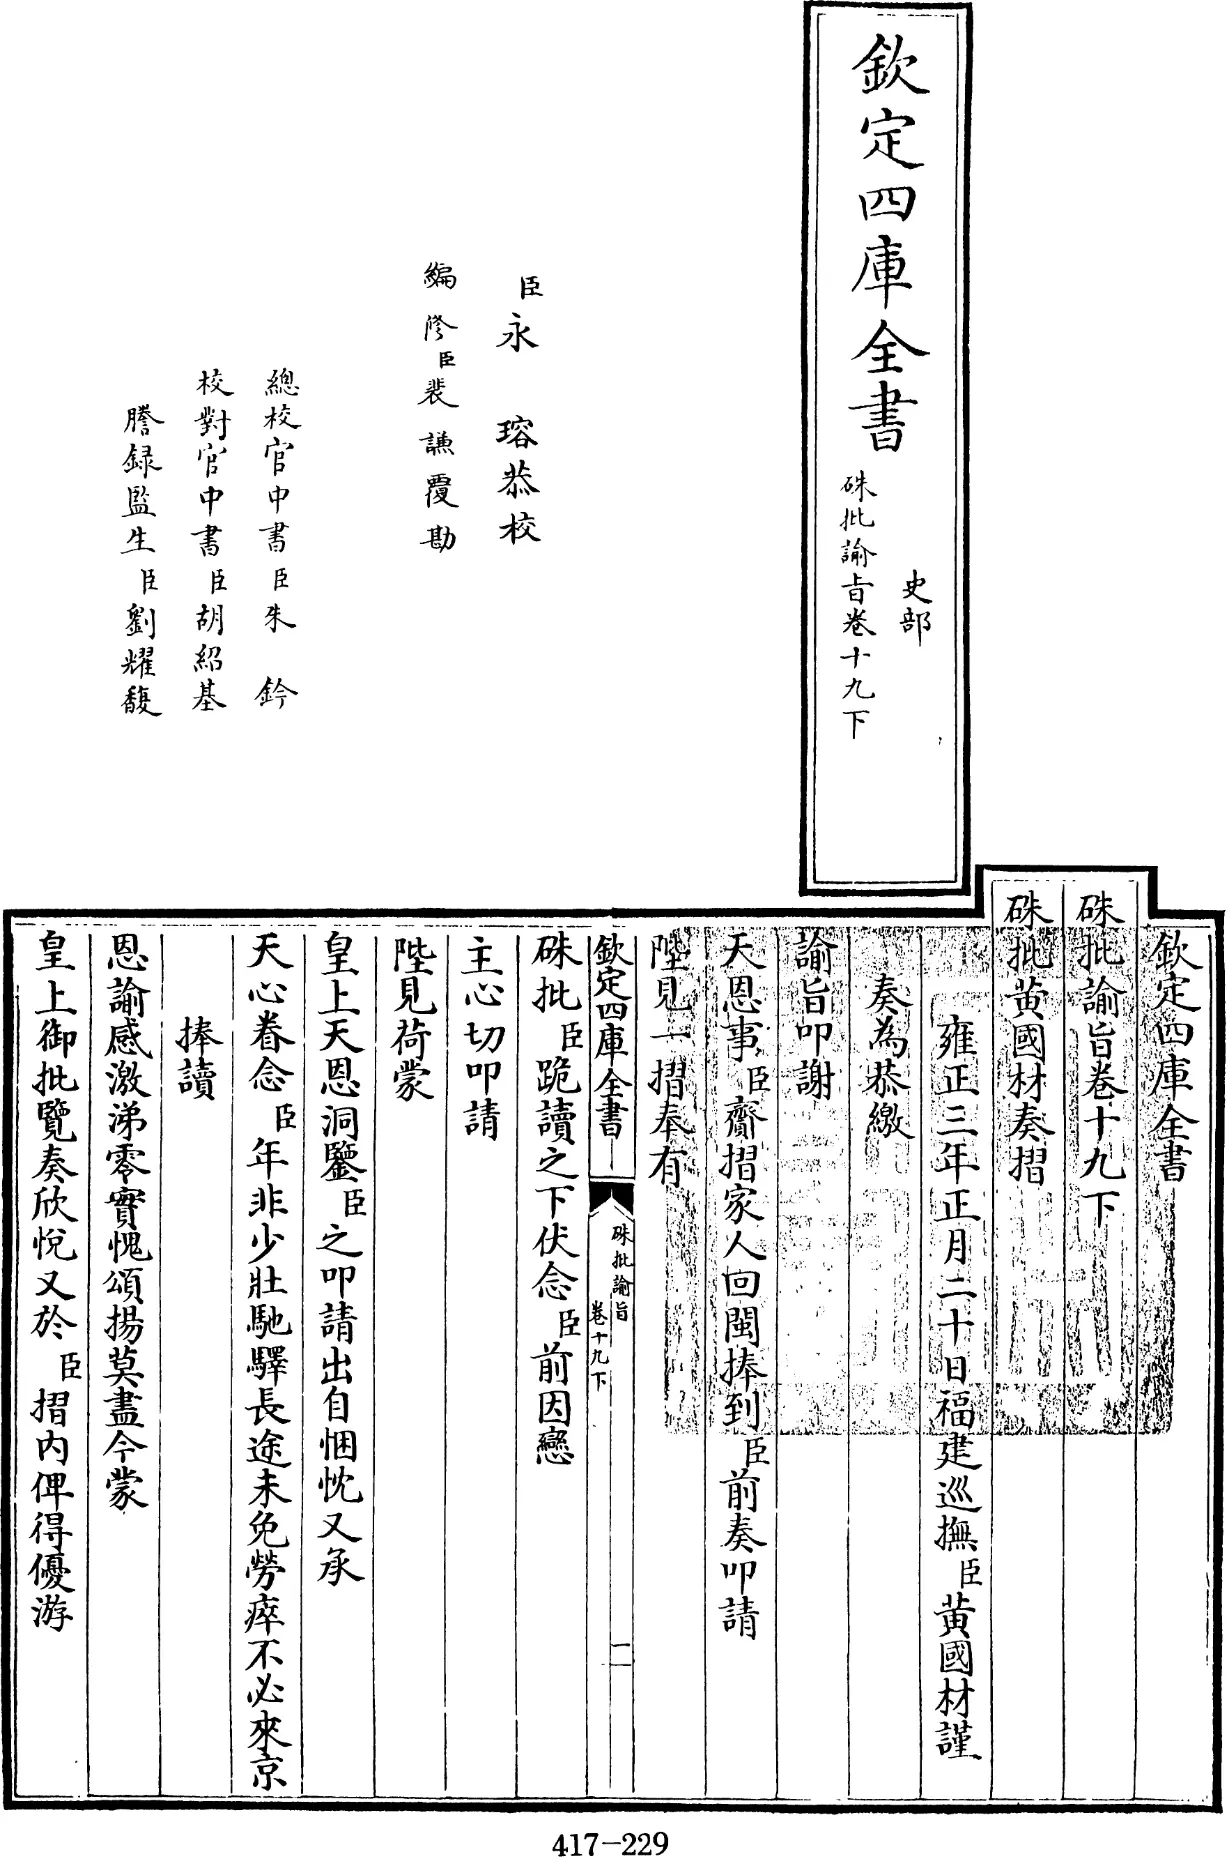 欽定四庫全書
史部
硃批諭旨卷十九下
臣永瑢恭校
編修臣裴謙覆勘
總校官中書臣朱鈐
校對官中書臣胡紹基
謄錄監生臣劉耀馥
欽定四庫全書
硃批諭旨卷十九下
硃批黃國材奏摺
雍正三年正月二十日福建巡撫臣黃國材謹
奏為恭繳
諭旨叩謝
天恩事臣齎摺家人回閩捧到臣前奏叩請
陛見一摺奉有
欽定四庫全書
硃批諭旨
卷十九下
一
硃批臣跪讀之下伏念臣前因戀
主心切叩請
陛見荷蒙
皇上天恩洞鑒臣之叩請出自悃忱又承
天心眷念臣年非少壯馳驛長途未免勞瘁不必來京
捧讀
恩諭感激涕零實愧頌揚莫盡今蒙
皇上御批覽奏欣悅又於臣摺內俾得優游
417-229